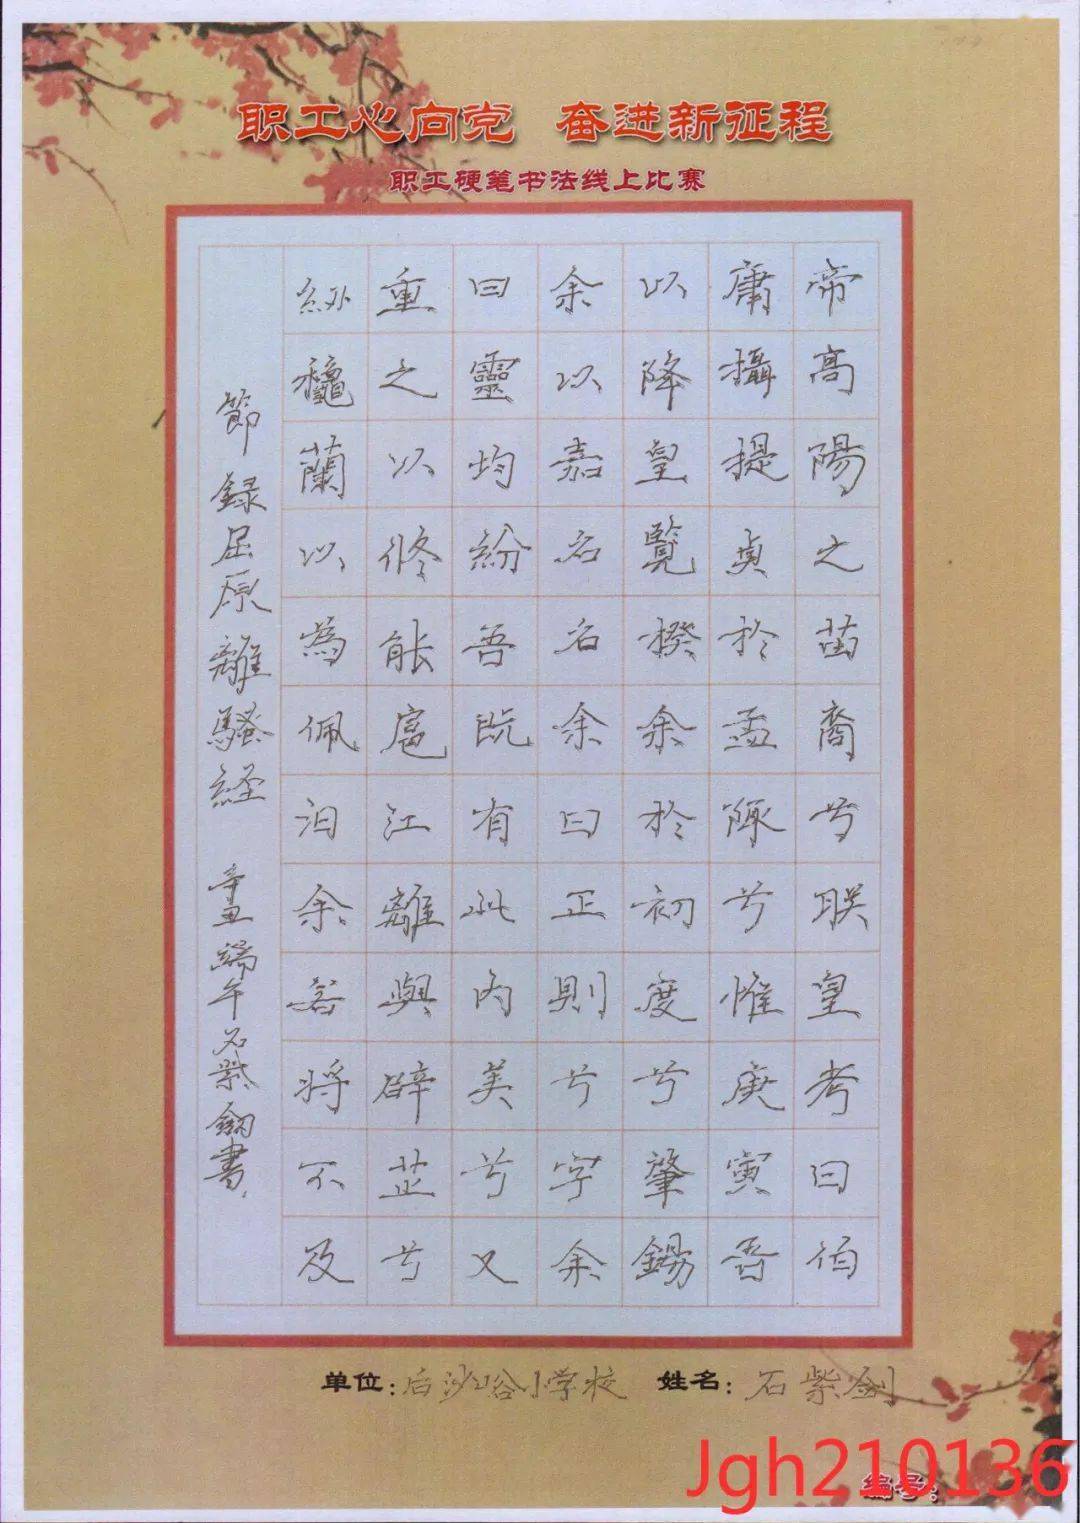 职工心向党 奋进新征程
职工硬笔书法线上比赛
帝高陽之苗裔兮朕皇考曰伯
庸攝提貞於孟陬兮惟庚寅吾
以降皇覽揆余於初度兮肇錫
余以嘉名名余曰正則兮字余
曰靈均紛吾既有此內美兮又
重之以修能扈江離與辟芷兮
紉穐蘭以為佩汩余若將不及
節録屈原離騷経 辛丑端午石紫劍書
单位:后沙峪小学校 姓名:石紫剑
编号:
Jgh210136